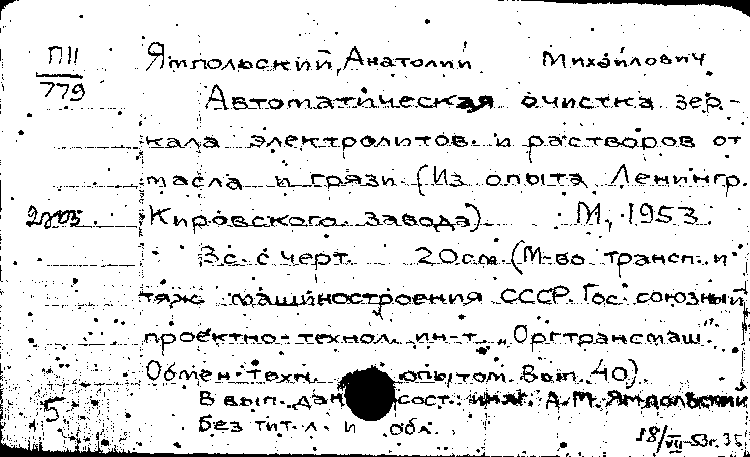 П11 Ямпольский, Анатолий Михайлович
779
Автоматическая очистка зер-
кала электролитов и растворов от
масла и грязи (Из опыта Ленингр.
Кировского завода). М., 1953.
3с. с черт. 20см (М-во трансп. и
тяж. машиностроения СССР. Гос. союзный
проектно-технол. ин-т „Оргтрансмаш".
Обмен техн. опытом. Вып. 40).
В вып. дан сост.: инж. А.М. Ямпольский
5 Без тит. л. и обл.
18/VII-53г.